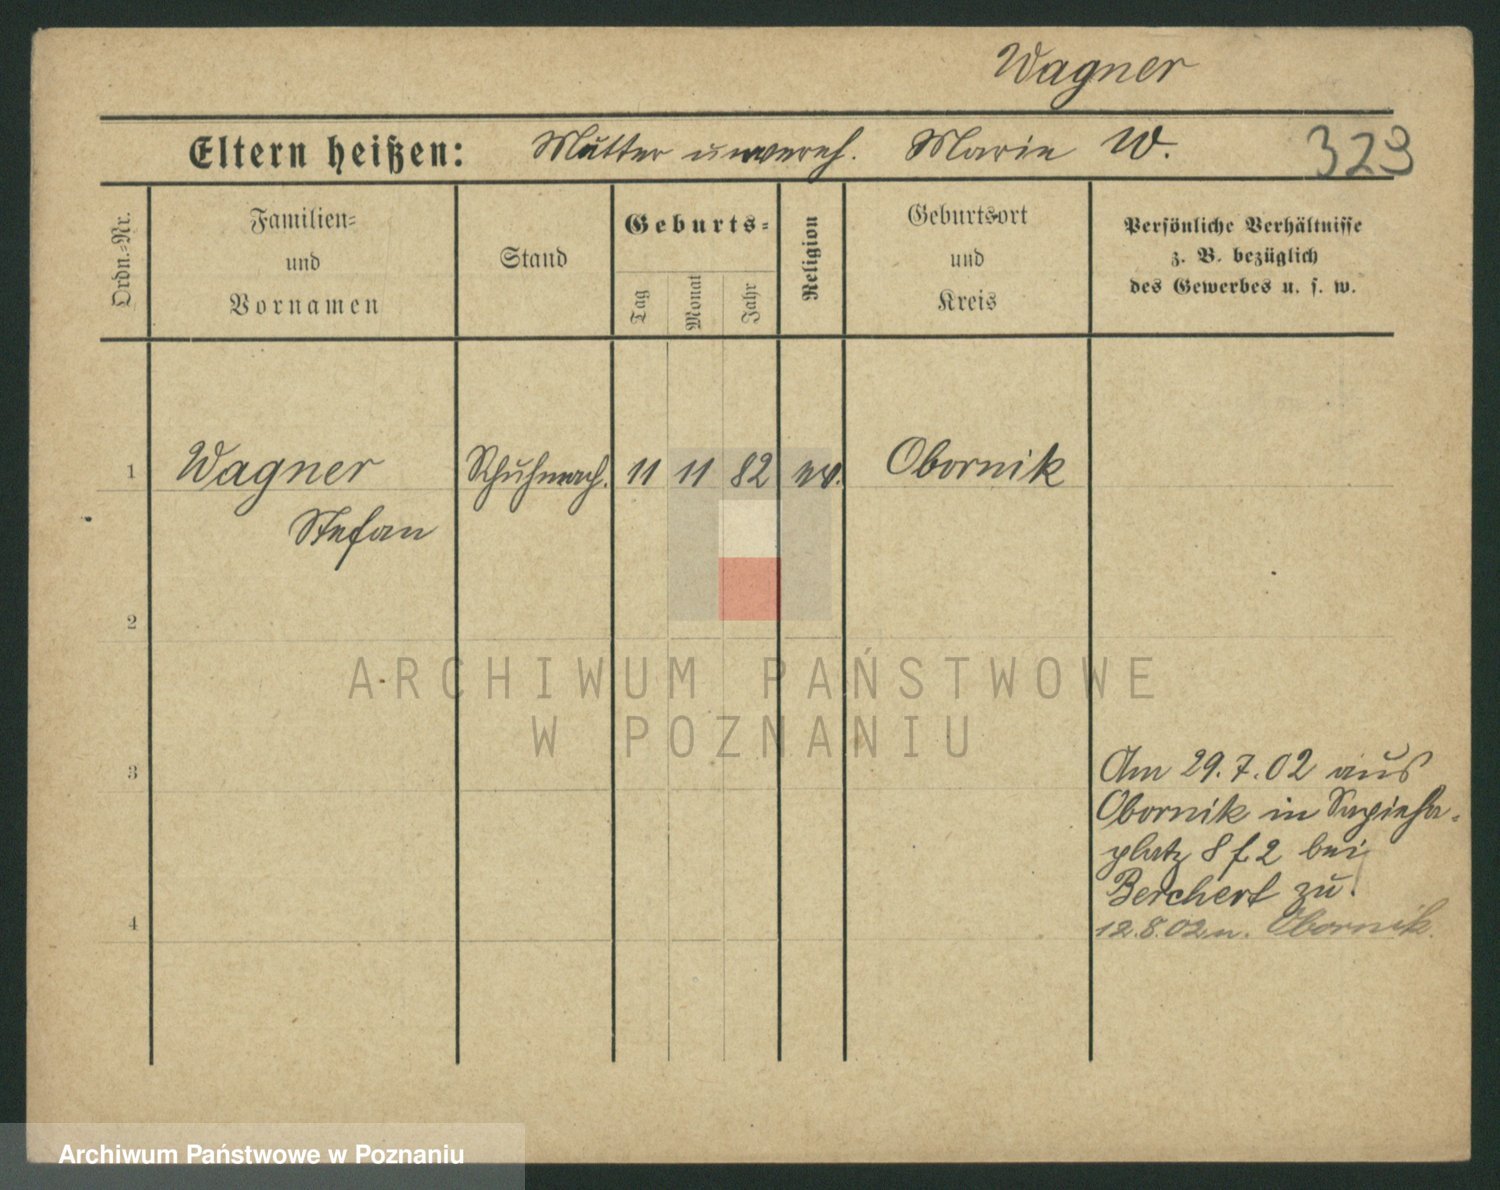 Wagner
Eltern heißen: Mutter unvereh. Marie W. 323
Ordn.-Nr.
Familien-
und
Vornamen
Stand
Geburts-
Tag
Monat
Jahr
Religion
Geburtsort
und
Kreis
Persönliche Verhältnisse
z. B. bezüglich
des Gewerbes u. s. w.
1 Wagner Schuhmach. 11 11 82 Obornik
Stefan
2
ARCHIWUM PAŃSTWOWE
W POZNANIU
3 Am 29.7.02 aus
Obornik in Sapieha-
platz 8 f. 2 bei
Berchert zu.
4 12.8.02 n. Obornik.
Archiwum Państwowe w Poznaniu